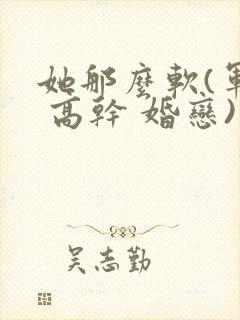 她那麼軟(軍
高幹 婚戀)
吳志勤